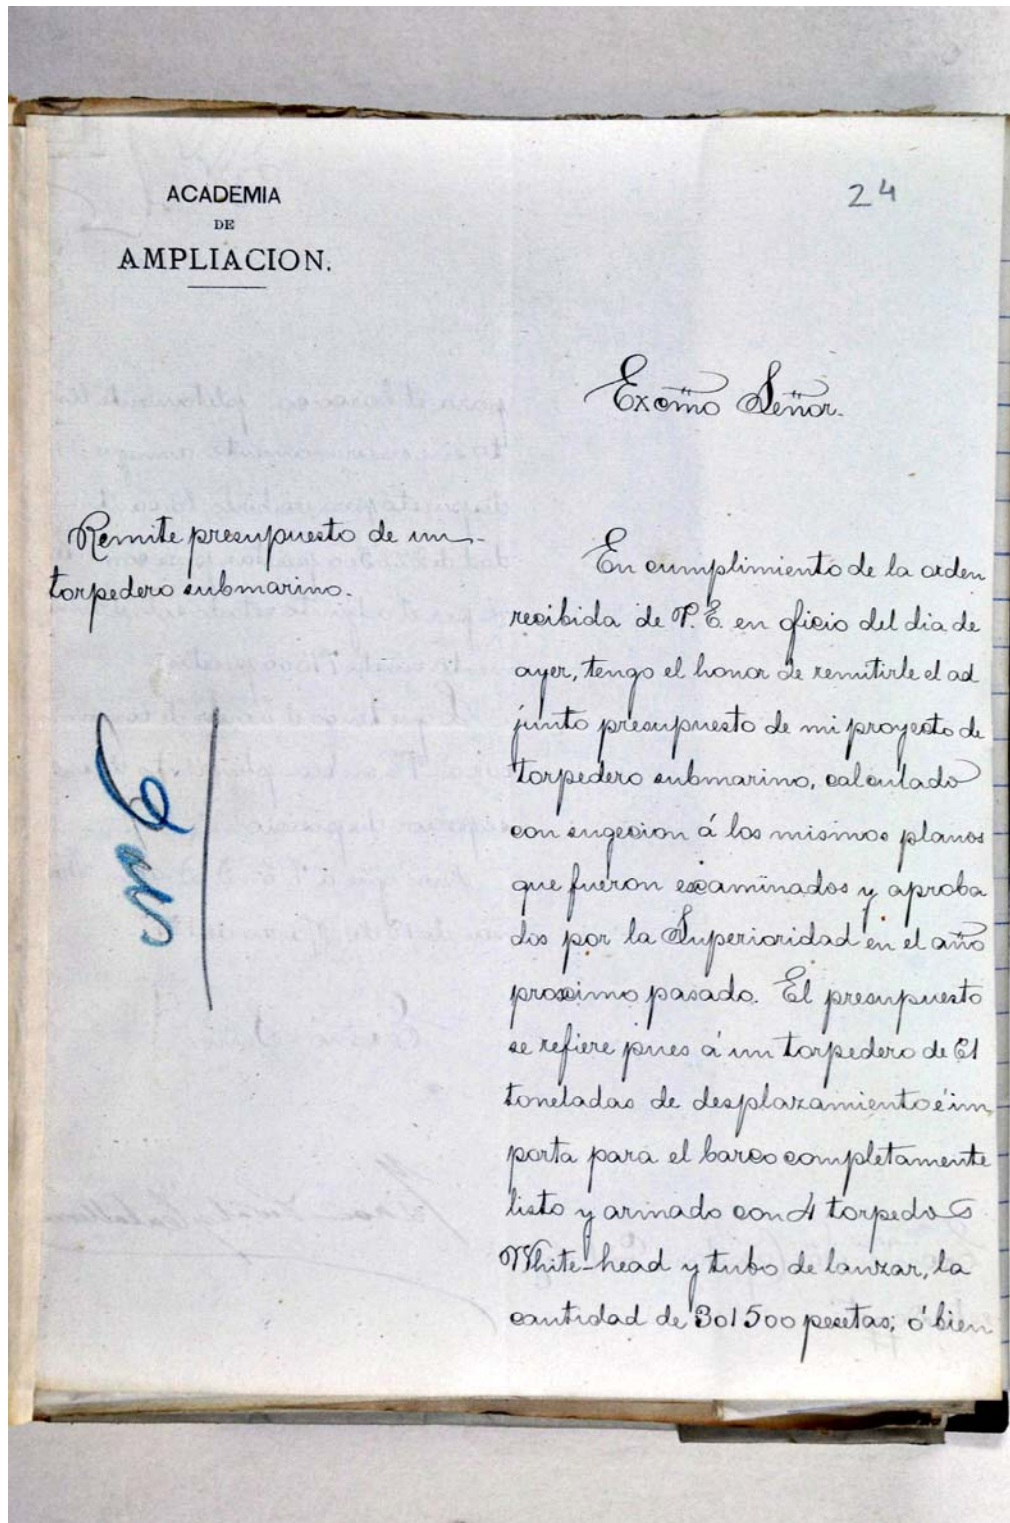 ACADEMIA
DE
AMPLIACION.
24
Excmo Señor.
Remite presupuesto de un
torpedero submarino.
En cumplimiento de la orden
recibida de V. E. en oficio del dia de
ayer, tengo el honor de remitirle el ad
junto presupuesto de mi proyecto de
torpedero submarino, calculado
con sugecion á los mismos planos
que fueron examinados y aproba
dos por la Superioridad en el año
proximo pasado. El presupuesto
se refiere pues á un torpedero de 61
toneladas de desplazamiento é im
porta para el barco completamente
listo y armado con 4 torpedos
White-head y tubo de lanzar, la
cantidad de 301500 pesetas; ó bien